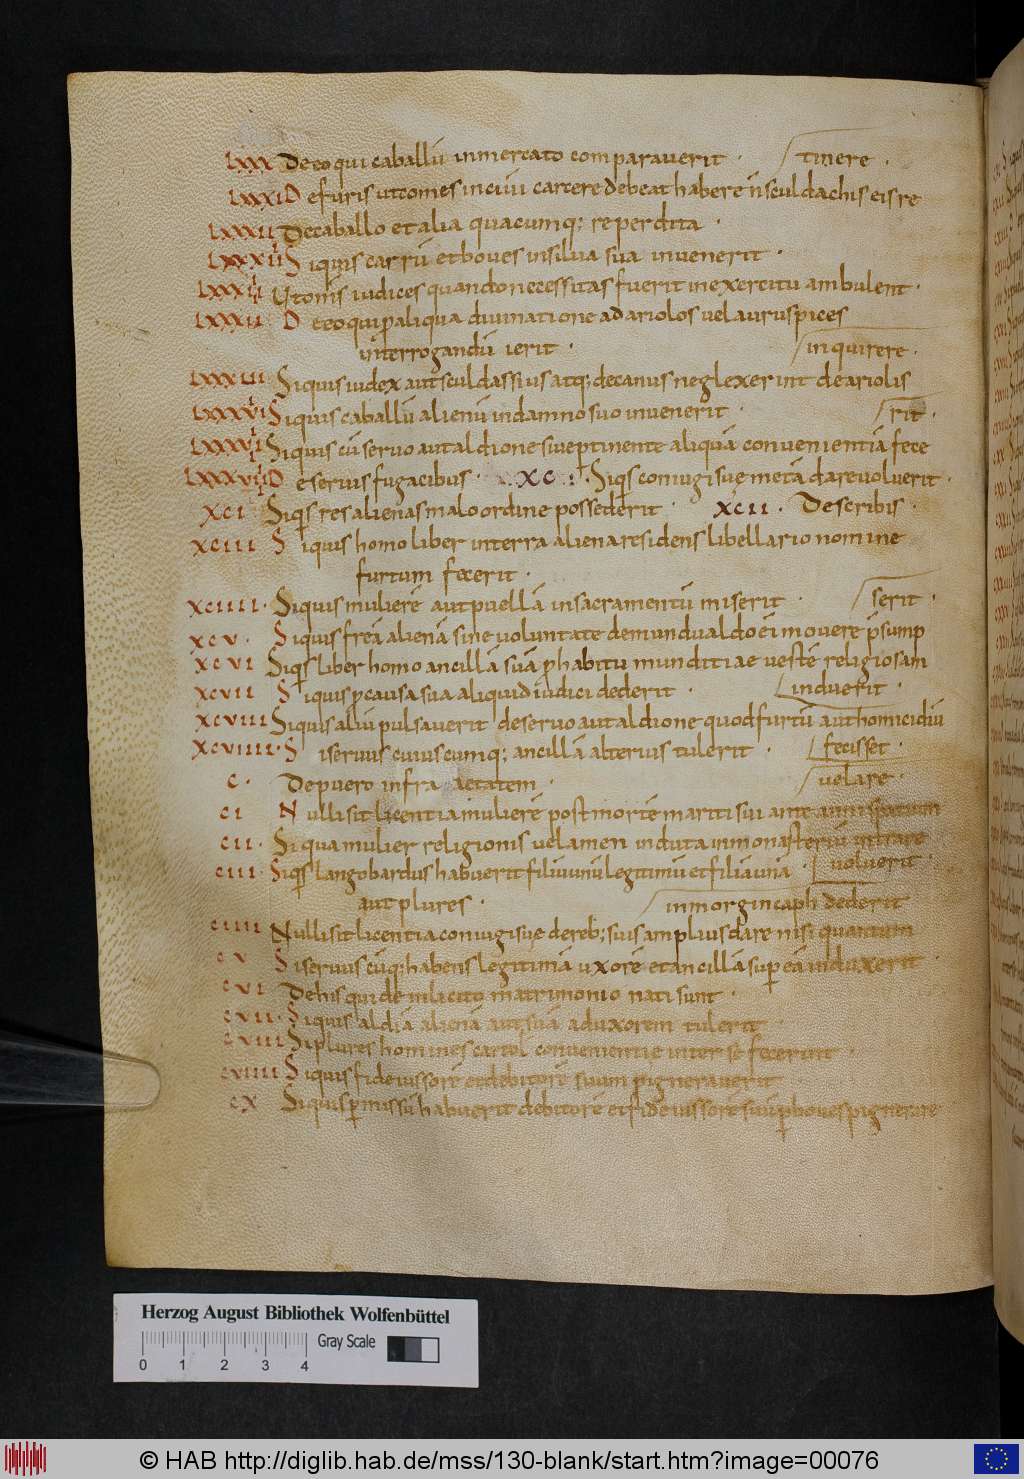 LXXX De eo qui caballū in mercato comparaverit · tinere ·
LXXXI De furis ut comes in civū carcere debeat habere ñ sculdachis eis re
LXXXII De caballo et alia quacumq; re perdita ·
LXXXIII Si quis carrū et boves in silva sua invenerit ·
LXXXIIII Ut om̄s iudices quando necessitas fuerit in exercitu ambulent ·
LXXXV De eo qui p aliqua divinatione ad ariolos vel auruspices
interrogandū ierit · inquirere ·
Si quis iudex aut sculdassius atq; decanus neglexerint de ariolis
Si quis caballū alienū in damno suo invenerit · rit ·
Si quis cū servo aut aldione sive ptinente aliquā convenientiā fece
De servis fugacibus · XC I · Siqs coniugi sue metā dare voluerit ·
XCI Siqs res alienas malo ordine possederit · XCII · De scribis ·
XCIII Si quis homo liber in terra aliena residens libellario nomine
furtum fecerit ·
XCIIII · Si quis mulierē aut puellā in sacramentū miserit · serit ·
XCV · Si quis freā alienā sine voluntate de mundualdo ei movere p̄sump
XCVI Siqs liber homo ancillā suā p habitu munditiae vestē religiosam
XCVII Si quis p causa sua aliquid iudici dederit · induerit ·
XCVIII Si quis aliū pulsaverit de servo aut aldione quod furtū aut homicidiū
XCVIIII · Si servus cuiuscumq; ancillā alterius tulerit · fecisset ·
C · De puero infra aetatem · velare ·
CI Nulli sit licentia mulierē post mortē mariti sui ante anni spatium
CII · Si qua mulier religionis velamen induta in monasteriū intrare
CIII · Siqs langobardus habuerit filiū unū legitimū et filiā unā · voluerit ·
aut plures · in morgincaph dederit
CIIII Nulli sit licentia coniugi sue de reb; suis amplius dare nisi quantum
CV Si servus cūq; habens legitimā uxorē et ancillā sup eā induxerit ·
CVI De his qui de inlicito matrimonio nati sunt ·
CVII · Si quis aldiā alienā aut suā ad uxorem tulerit ·
CVIII Si plures homines cartol convenientie inter se fecerint ·
CVIIII Si quis fideiussorē et debitorē suum pigneraverit
CX Si quis pmissū habuerit debitorē et fideiussorē suū p boves pignerare
Herzog August Bibliothek Wolfenbüttel
Gray Scale
0 1 2 3 4
© HAB http://diglib.hab.de/mss/130-blank/start.htm?image=00076